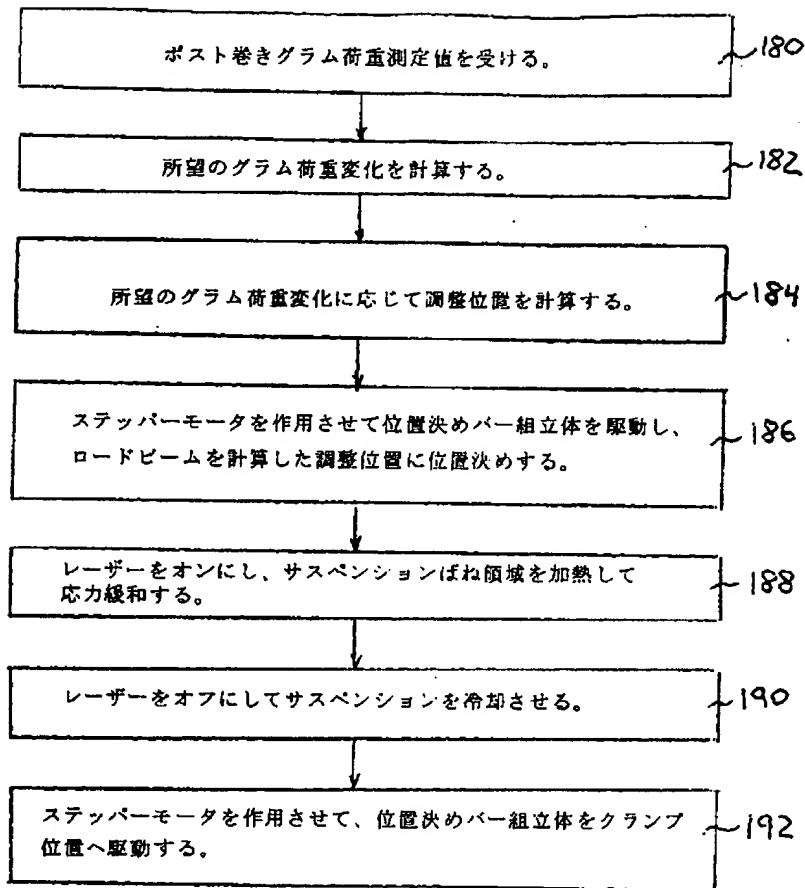 ポスト巻きグラム荷重測定値を受ける。
180
所望のグラム荷重変化を計算する。
182
所望のグラム荷重変化に応じて調整位置を計算する。
184
ステッパーモータを作用させて位置決めバー組立体を駆動し、
ロードビームを計算した調整位置に位置決めする。
186
レーザーをオンにし、サスペンションばね領域を加熱して
応力緩和する。
188
レーザーをオフにしてサスペンションを冷却させる。
190
ステッパーモータを作用させて、位置決めバー組立体をクランプ
位置へ駆動する。
192